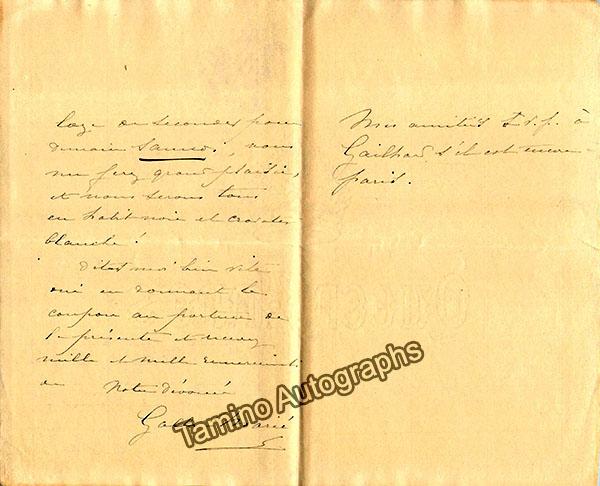 loge de secondes pour
demain Samedi, vous
me ferez grand plaisir,
et nous serons tous
en habit noir et cravates
blanche!
Dites moi bien vite
oui en donnant le
coupon au porteur de
la présente et recevez
mille et mille remerciments
de Votre dévoué
Galli Marié
Mes amitiés s.v.p. à
Gailhard s'il est encore
Paris.
Tamino Autographs